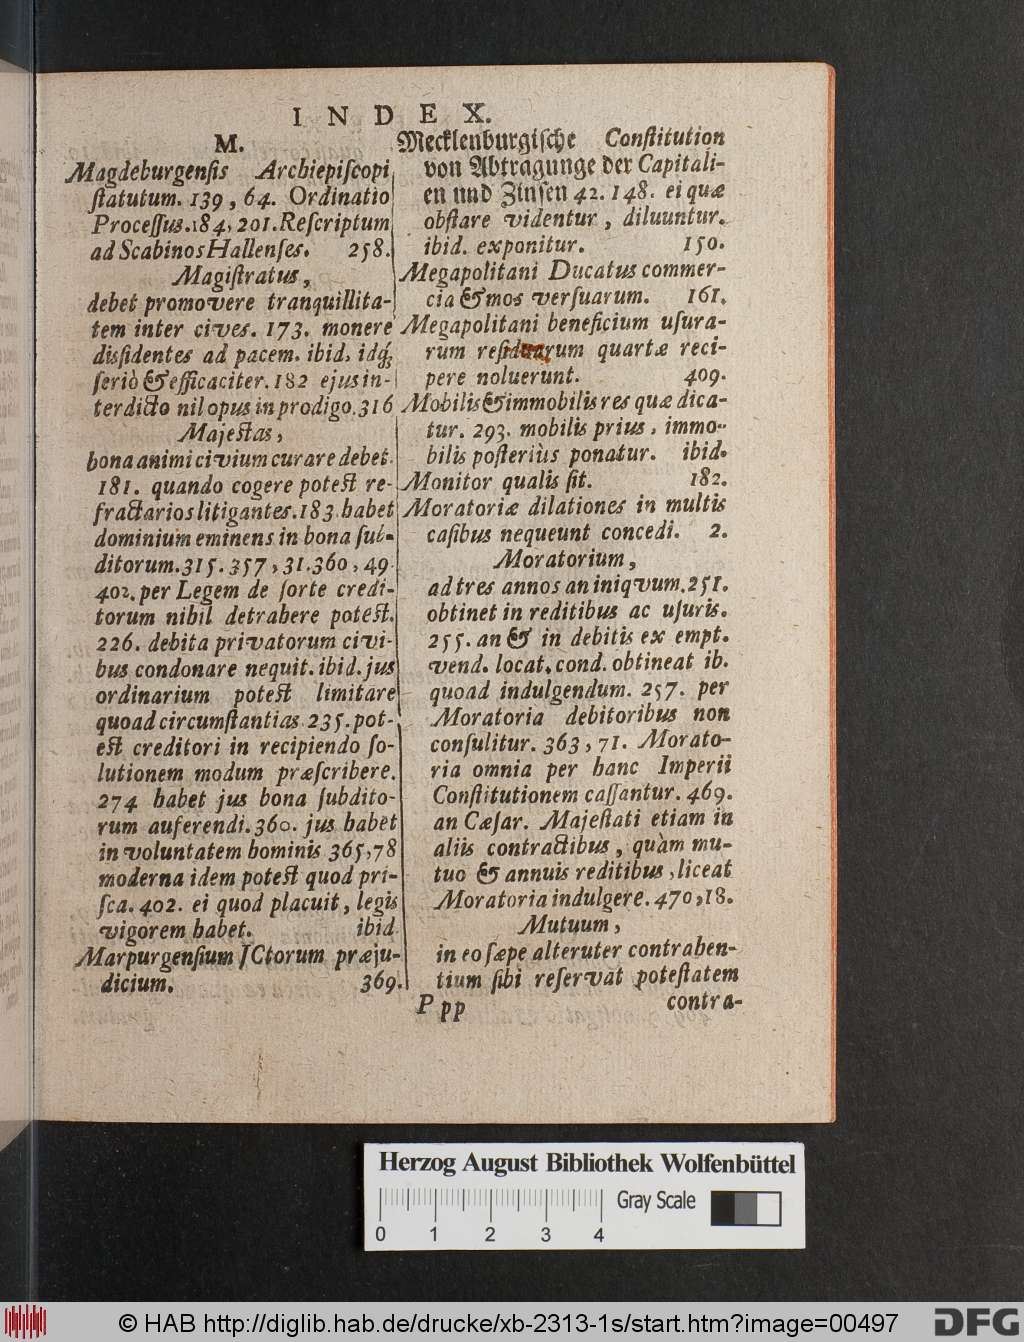 INDEX.
M.
Magdeburgenſis Archiepiſcopi
ſtatutum. 139, 64. Ordinatio
Proceſſus. 184, 201. Reſcriptum
ad Scabinos Hallenſes. 258.
Magiſtratus,
debet promovere tranquillita-
tem inter cives. 173. monere
disſidentes ad pacem. ibid, idq;
ſeriò & efficaciter. 182 ejus in-
terdicto nil opus in prodigo. 316
Majeſtas,
bona animi civium curare debet.
181. quando cogere poteſt re-
fractarios litigantes. 183. habet
dominium eminens in bona ſub-
ditorum. 315. 357, 31. 360, 49
402. per Legem de ſorte credi-
torum nihil detrahere poteſt.
226. debita privatorum civi-
bus condonare nequit. ibid. jus
ordinarium poteſt limitare
quoad circumſtantias 235. pot-
eſt creditori in recipiendo ſo-
lutionem modum præſcribere.
274 habet jus bona ſubdito-
rum auferendi. 360. jus habet
in voluntatem hominis 365, 78
moderna idem poteſt quod pri-
ſca. 402. ei quod placuit, legis
vigorem habet. ibid
Marpurgenſium JCtorum præju-
dicium. 369.
Mecklenburgiſche Conſtitution
von Abtragunge der Capitali-
en und Zinſen 42. 148. ei quæ
obſtare videntur, diluuntur.
ibid. exponitur. 150.
Megapolitani Ducatus commer-
cia & mos verſuarum. 161.
Megapolitani beneficium uſura-
rum reſiduarum quartæ reci-
pere noluerunt. 409.
Mobilis & immobilis res quæ dica-
tur. 293. mobilis prius, immo-
bilis poſteriùs ponatur. ibid.
Monitor qualis ſit. 182.
Moratoriæ dilationes in multis
caſibus nequeunt concedi. 2.
Moratorium,
ad tres annos an iniqvum. 251.
obtinet in reditibus ac uſuris.
255. an & in debitis ex empt.
vend. locat. cond. obtineat ib.
quoad indulgendum. 257. per
Moratoria debitoribus non
conſulitur. 363, 71. Morato-
ria omnia per hanc Imperii
Conſtitutionem caſſantur. 469.
an Cæſar. Majeſtati etiam in
aliis contractibus, quàm mu-
tuo & annuis reditibus, liceat
Moratoria indulgere. 470, 18.
Mutuum,
in eo ſæpe alteruter contrahen-
tium ſibi reſervat poteſtatem
Ppp contra-
Herzog August Bibliothek Wolfenbüttel
Gray Scale
0 1 2 3 4
© HAB http://diglib.hab.de/drucke/xb-2313-1s/start.htm?image=00497
DFG